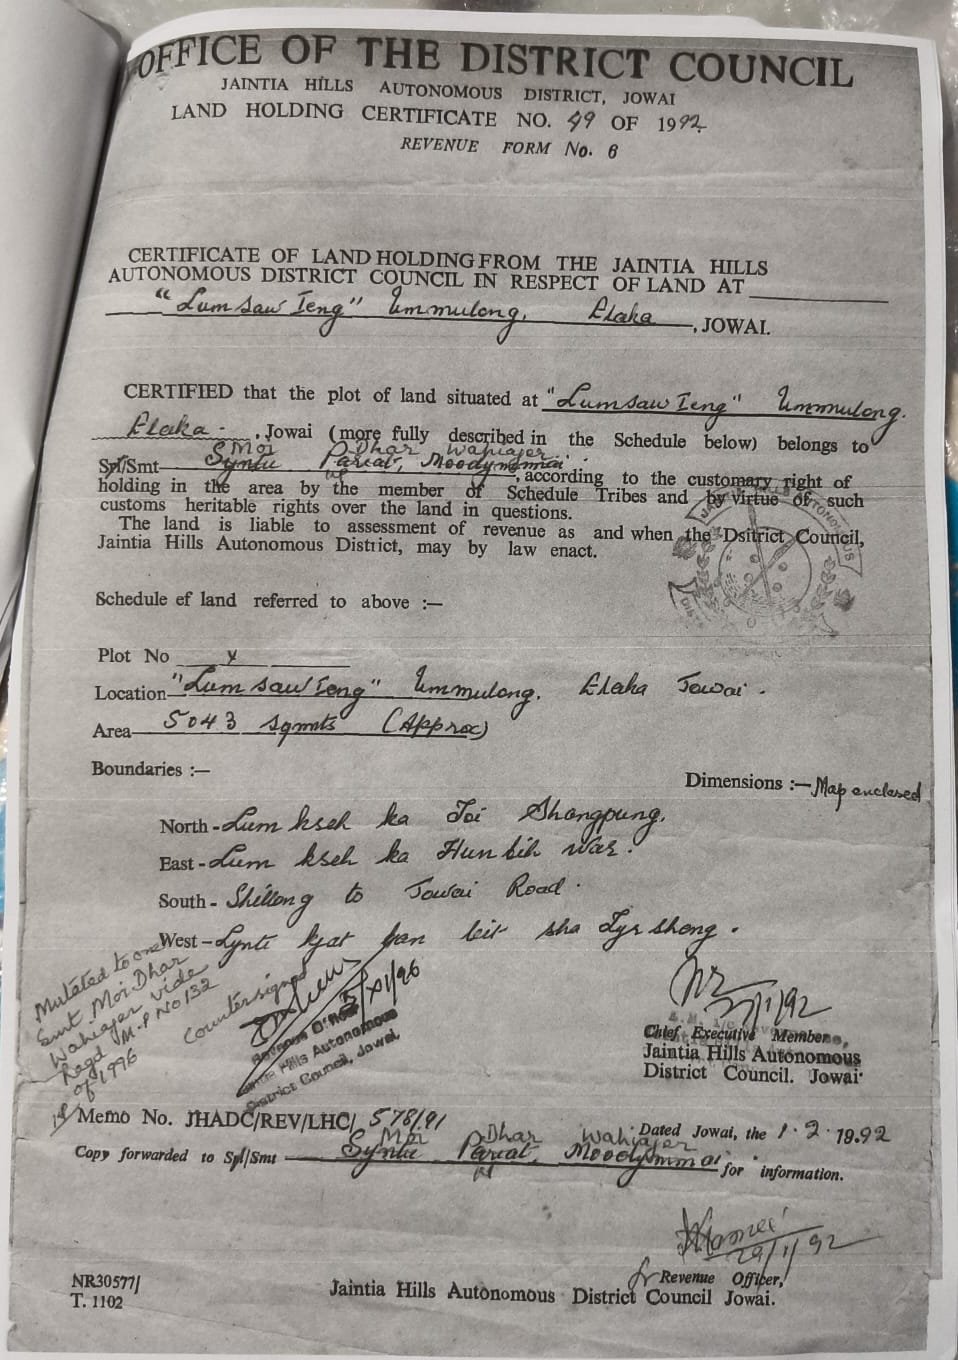 OFFICE OF THE DISTRICT COUNCIL
JAINTIA HILLS AUTONOMOUS DISTRICT, JOWAI
LAND HOLDING CERTIFICATE NO. 49 OF 1992
REVENUE FORM No. 6
CERTIFICATE OF LAND HOLDING FROM THE JAINTIA HILLS
AUTONOMOUS DISTRICT COUNCIL IN RESPECT OF LAND AT
"Lum saw Ieng" Ummulong, Elaka, JOWAI.
CERTIFIED that the plot of land situated at "Lumsaw Ieng" Ummulong.
Elaka - , Jowai (more fully described in the Schedule below) belongs to
Moi Dhar Wahiajer
Syntu Pariat, Moodymmai, according to the customary right of
holding in the area by the member of Schedule Tribes and by virtue of such
customs heritable rights over the land in questions.
The land is liable to assessment of revenue as and when the Dsitrict Council,
Jaintia Hills Autonomous District, may by law enact.
Schedule ef land referred to above :—
Plot No x
Location "Lum saw Ieng" Ummulong. Elaka Jowai.
Area 5043 sqmts (Approx)
Boundaries :—
Dimensions :— Map enclosed
North - Lum kseh ka Toi Shangpung.
East - Lum kseh ka Hunbih War.
South - Shillong to Jowai Road.
West - Lynti kjat ban leit sha Tyrshang.
Mutated to one
Smt Moi Dhar
Wahiajer vide
Regd M.P No 132
of 1996
Countersigned
5/XI/96
Jaintia Hills Autonomous
District Council, Jowai,
/1/92
Chief Executive Member,
Jaintia Hills Autonomous
District Council. Jowai
Memo No. JHADC/REV/LHC/ 578/91
Dated Jowai, the 1.2.1992
Moi Dhar Wahiajer
Copy forwarded to Syntu Pariat, Moodymmai for information.
29/1/92
for Revenue Officer,
Jaintia Hills Autonomous District Council Jowai.
NR30577/
T. 1102